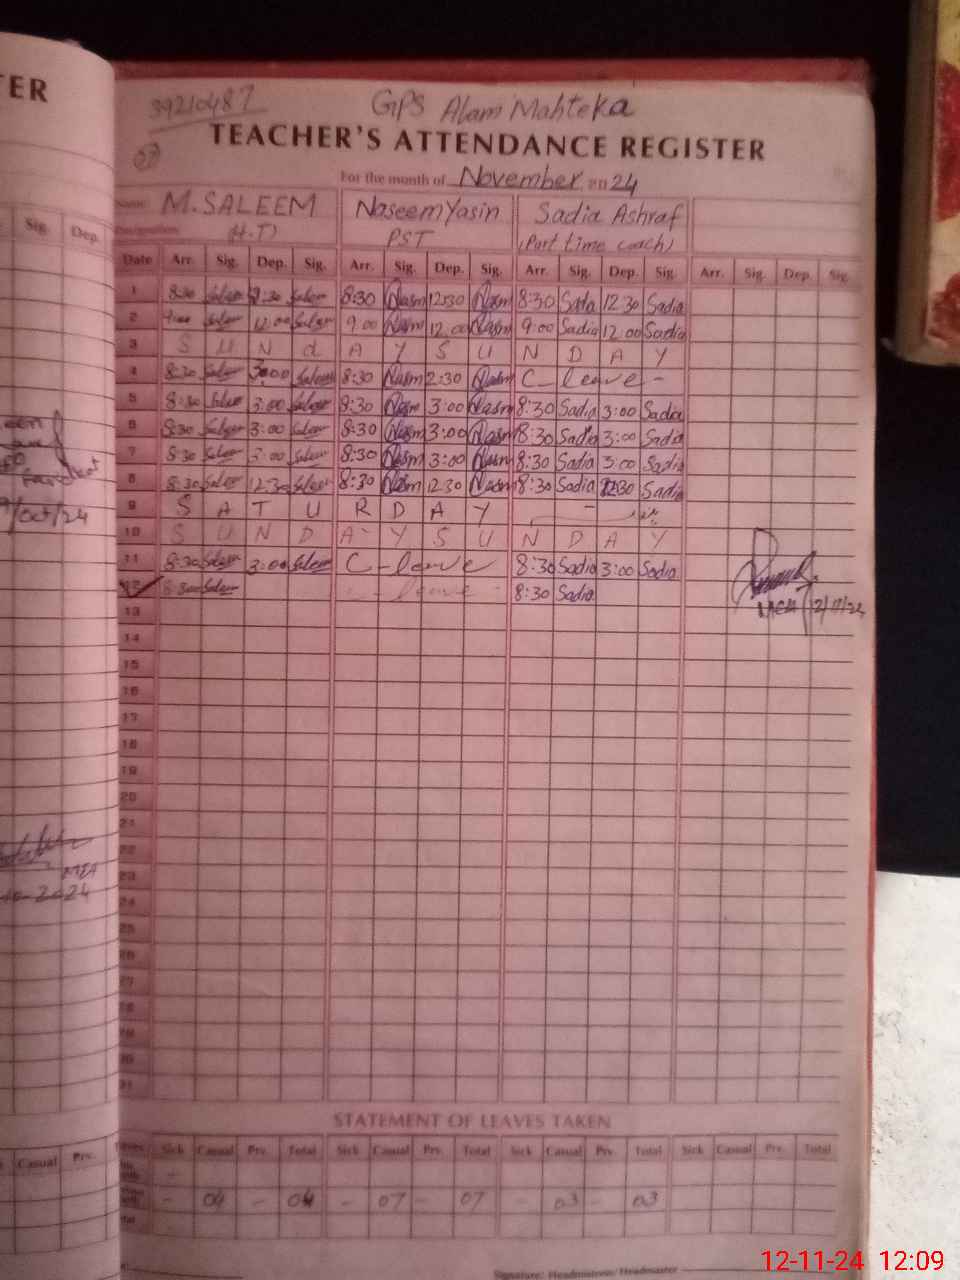 TER
39210487
GPS Alam Mahteka
TEACHER'S ATTENDANCE REGISTER
07
For the month of November 2024
Name M.SALEEM Naseem Yasin Sadia Ashraf
Designation (H.T) PST (Part time coach)
Sig. Dep.
Date Arr. Sig. Dep. Sig. Arr. Sig. Dep. Sig. Arr. Sig. Dep. Sig. Arr. Sig. Dep. Sig.
1 8:30 Saleem 12:30 Saleem 8:30 Nasm 12:30 Nasm 8:30 Sadia 12:30 Sadia
2 9:00 Saleem 12:00 Saleem 9:00 Nasm 12:00 Nasm 9:00 Sadia 12:00 Sadia
3 S U N d A Y S U N D A Y
4 8:30 Saleem 3:00 Saleem 8:30 Nasm 2:30 Nasm C-leave-
5 8:30 Saleem 3:00 Saleem 8:30 Nasm 3:00 Nasm 8:30 Sadia 3:00 Sadia
6 8:30 Saleem 3:00 Saleem 8:30 Nasm 3:00 Nasm 8:30 Sadia 3:00 Sadia
7 8:30 Saleem 3:00 Saleem 8:30 Nasm 3:00 Nasm 8:30 Sadia 3:00 Sadia
8 8:30 Saleem 12:30 Saleem 8:30 Nasm 12:30 Nasm 8:30 Sadia 12:30 Sadia
9 S A T U R D A Y
10 S U N D A Y S U N D A Y
11 8:30 Saleem 3:00 Saleem C-leave 8:30 Sadia 3:00 Sadia
12 8:30 Saleem C-leave 8:30 Sadia
MEA 12/11/24
13
14
15
16
17
18
19
20
21
22
23
24
25
26
27
28
29
30
31
/Oct/24
MEA
2024
STATEMENT OF LEAVES TAKEN
Casual Prv.
Leaves Sick Casual Prv. Total Sick Casual Prv. Total Sick Casual Prv. Total Sick Casual Prv. Total
- 04 - 04 - 07 - 07 - 03 - 03
Total
Signature: Headmistress/Headmaster
12-11-24 12:09